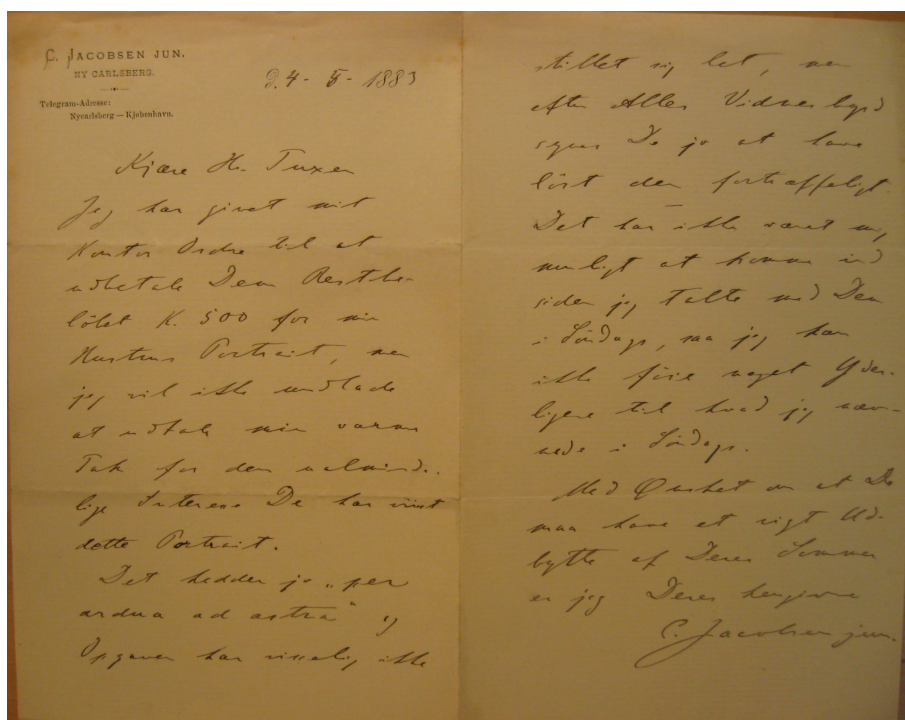 C. JACOBSEN JUN.
NY CARLSBERG.
Telegram-Adresse:
Nycarlsberg — Kjøbenhavn.
d. 4 - 5 - 1883
Kjære Hr. Tuxen
Jeg har givet mit
Kontor Ordre til at
udbetale Dem Restbe-
löbet K. 500 for min
Hustrus Portrait, men
jeg vil ikke undlade
at udtale min varme
Tak for den ualminde-
lige Interesse De har viist
dette Portrait.
Det hedder jo „per
ardua ad astra" og
Opgaven har visselig ikke
stillet sig let, men
efter Alles Vidnesbyrd
synes De jo at have
löst den fortræffeligt.
Det har ikke været mig
muligt at komme ind
siden jeg talte med Dem
i Söndags, saa jeg kan
ikke föie noget Yder-
ligere til hvad jeg næv-
nede i Söndags.
Med Ønsket om at De
maa have et rigt Ud-
bytte af Deres Sommer
er jeg Deres hengivne
C. Jacobsen jun.